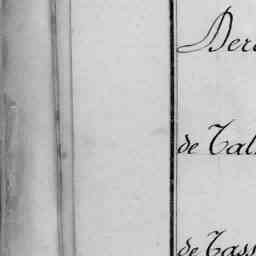 Der
de Tal
de Tass